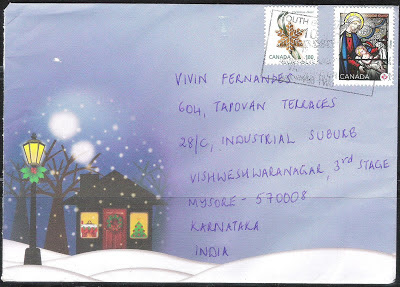 OUTH
CANADA 180
CANADA
P
VIVIN FERNANDES
604, TAPOVAN TERRACES
28/C, INDUSTRIAL SUBURB
VISHWESHWARANAGAR, 3rd STAGE
MYSORE - 570008
KARNATAKA
INDIA